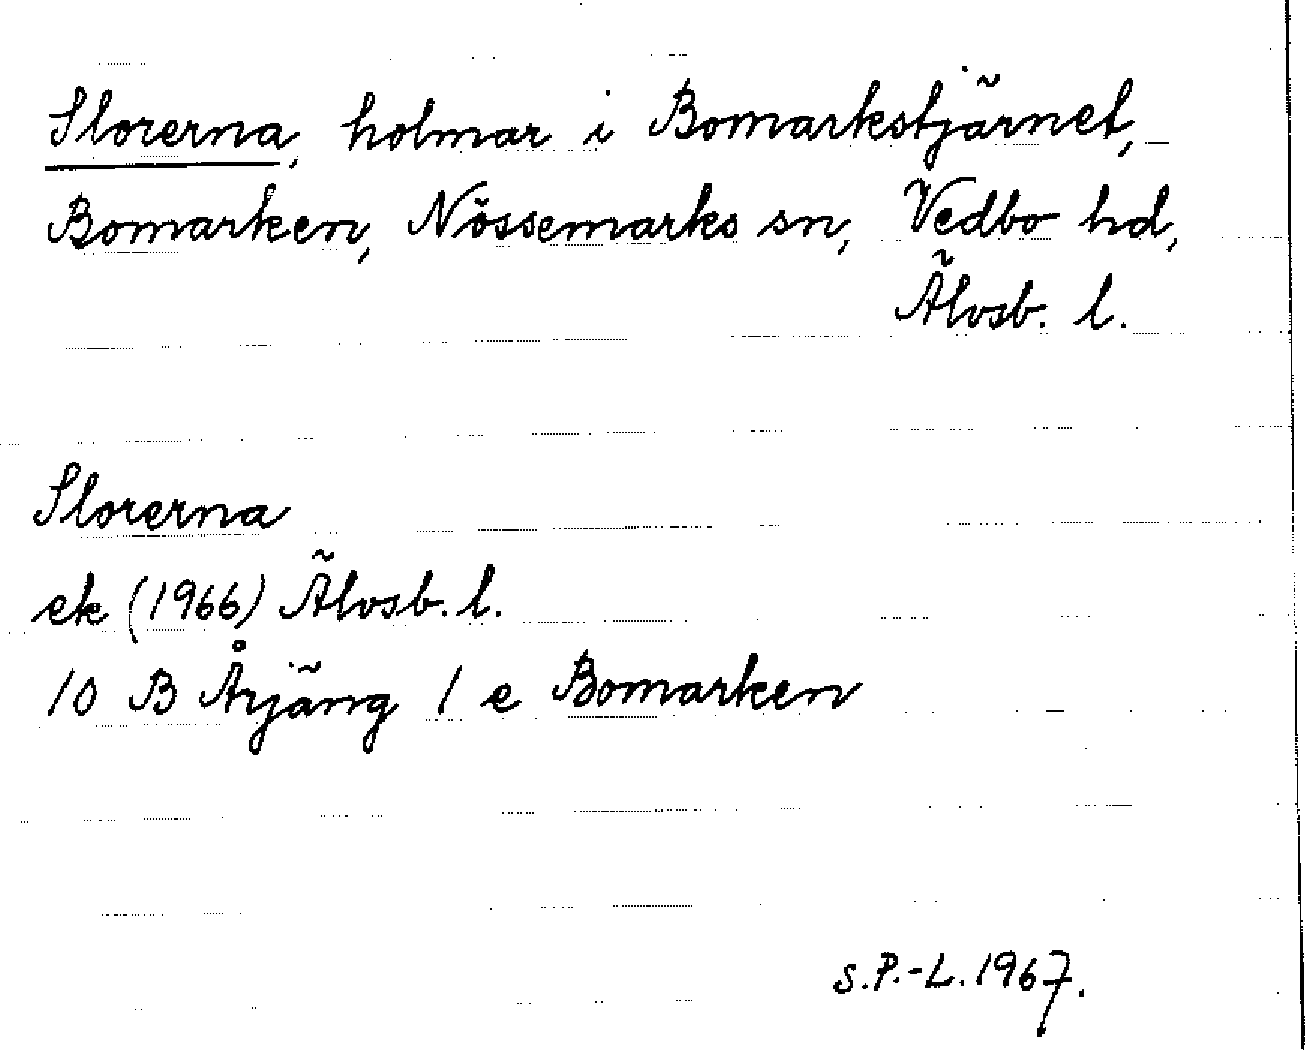 Slorerna, holmar i Bomarkstjärnet,
Bomarken, Nössemarks sn, Vedbo hd,
Älvsb. l.
Slorerna
ek (1966) Älvsb. l.
10 B Årjäng 1 e Bomarken
S.P.-L. 1967.